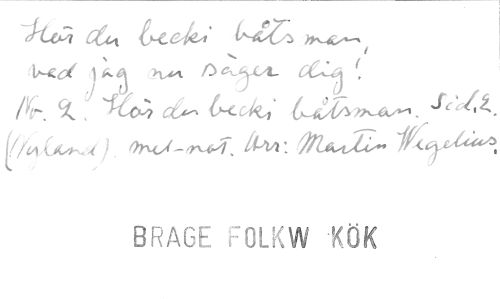 Hör du becki båtsman,
vad jag nu säger dig!
No. 2. Hör du becki båtsman. Sid. 2.
(Nyland). mel-not. Arr: Martin Wegelius.
BRAGE FOLKW KÖK